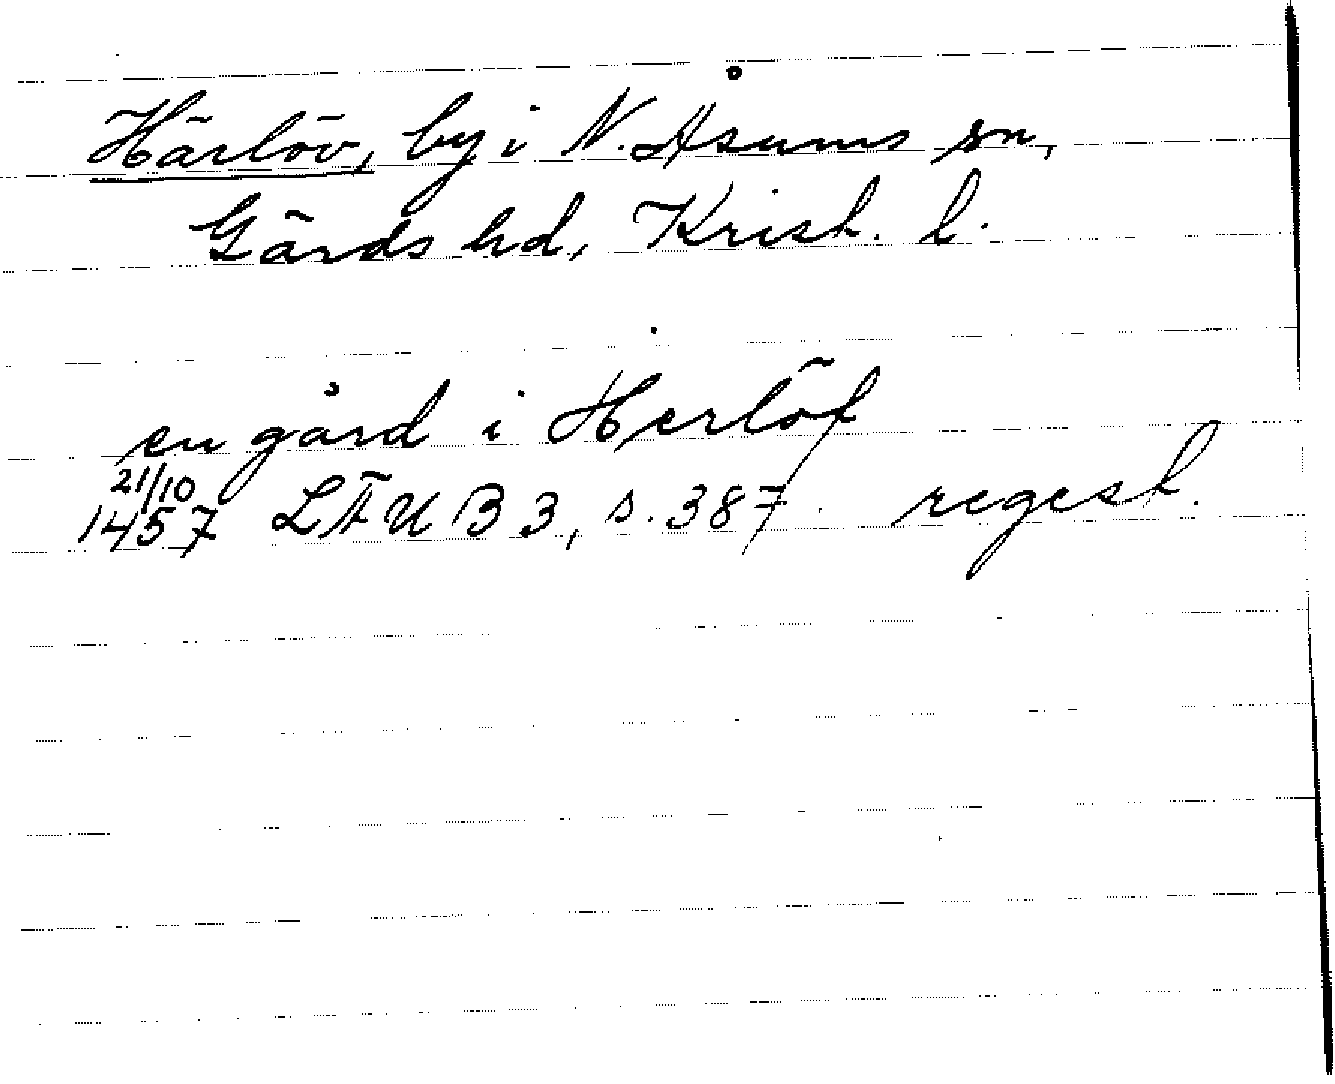 Härlöv, by i N. Åsums sn,
Gärds hd, Krist. l.
en gård i Herlöf
21/10
1457 LÄUB 3, s. 387. regest.